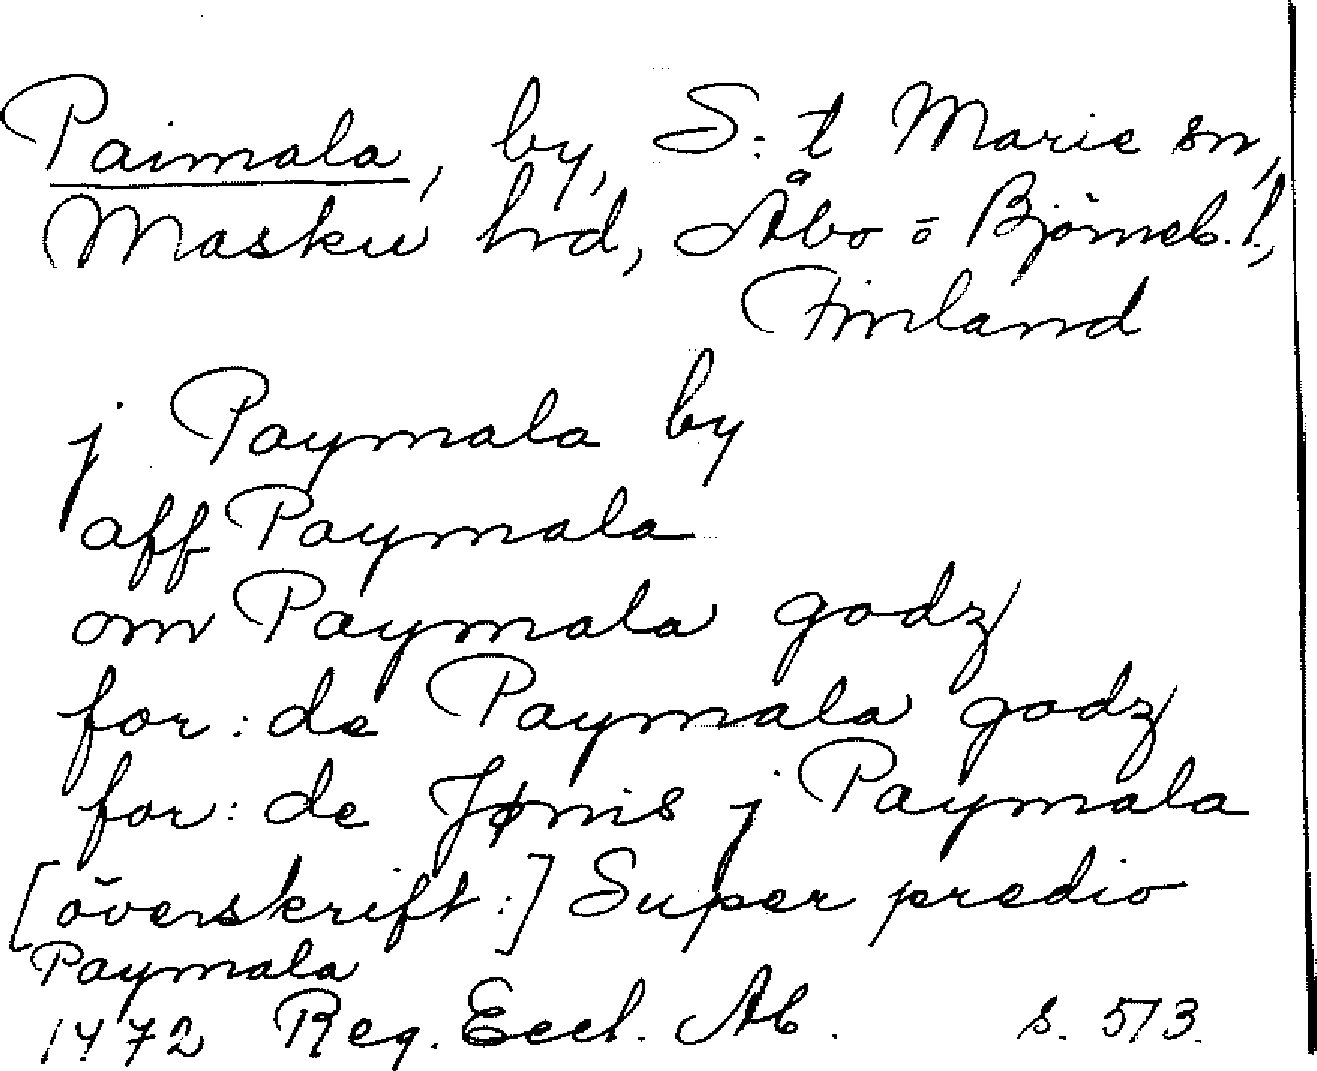 Paimala, by, S:t Marie sn,
Masku hrd, Åbo o Björneb. l.,
Finland
j Paymala by
aff Paymala
om Paymala godz
for: de Paymala godz
for: de Jønis j Paymala
[överskrift:] Super predio
Paymala
1472 Reg. Eccl. Ab. s. 513.